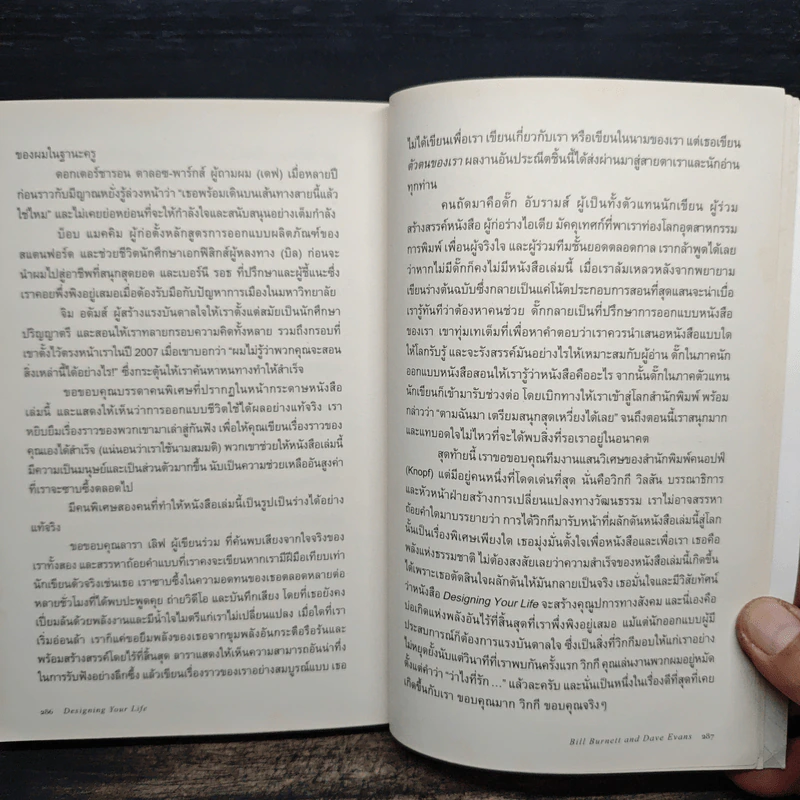 ของผมในฐานะครู
ดอกเตอร์ชารอน ดาลอซ-พาร์กส์ ผู้ถามผม (เดฟ) เมื่อหลายปี
ก่อนราวกับมีญาณหยั่งรู้ล่วงหน้าว่า “เธอพร้อมเดินบนเส้นทางสายนี้แล้ว
ใช่ไหม” และไม่เคยย่อหย่อนที่จะให้กำลังใจและสนับสนุนอย่างเต็มกำลัง
บ็อบ แมคคิม ผู้ก่อตั้งหลักสูตรการออกแบบผลิตภัณฑ์ของ
สแตนฟอร์ด และช่วยชีวิตนักศึกษาเอกฟิสิกส์ผู้หลงทาง (บิล) ก่อนจะ
นำผมไปสู่อาชีพที่สนุกสุดยอด และเบอร์นี รอธ ที่ปรึกษาและผู้ชี้แนะซึ่ง
เราคอยพึ่งพิงอยู่เสมอเมื่อต้องรับมือกับปัญหาการเมืองในมหาวิทยาลัย
จิม อดัมส์ ผู้สร้างแรงบันดาลใจให้เราตั้งแต่สมัยเป็นนักศึกษา
ปริญญาตรี และสอนให้เราทลายกรอบความคิดทั้งหลาย รวมถึงกรอบที่
เขาตั้งไว้ตรงหน้าเราในปี 2007 เมื่อเขาบอกว่า “ผมไม่รู้ว่าพวกคุณจะสอน
สิ่งเหล่านี้ได้อย่างไร!” ซึ่งกระตุ้นให้เราค้นหาหนทางทำให้สำเร็จ
ขอขอบคุณบรรดาคนพิเศษที่ปรากฏในหน้ากระดาษหนังสือ
เล่มนี้ และแสดงให้เห็นว่าการออกแบบชีวิตใช้ได้ผลอย่างแท้จริง เรา
หยิบยืมเรื่องราวของพวกเขามาเล่าสู่กันฟัง เพื่อให้คุณเขียนเรื่องราวของ
คุณเองได้สำเร็จ (แน่นอนว่าเราใช้นามสมมติ) พวกเขาช่วยให้หนังสือเล่มนี้
มีความเป็นมนุษย์และเป็นส่วนตัวมากขึ้น นับเป็นความช่วยเหลืออันสูงค่า
ที่เราจะซาบซึ้งตลอดไป
มีคนพิเศษสองคนที่ทำให้หนังสือเล่มนี้เป็นรูปเป็นร่างได้อย่าง
แท้จริง
ขอขอบคุณลารา เลิฟ ผู้เขียนร่วม ที่ค้นพบเสียงจากใจจริงของ
เราทั้งสอง และสรรหาถ้อยคำแบบที่เราคงจะเขียนหากเรามีฝีมือเทียบเท่า
นักเขียนตัวจริงเช่นเธอ เราซาบซึ้งในความอดทนของเธอตลอดหลายต่อ
หลายชั่วโมงที่ได้พบปะพูดคุย ถ่ายวิดีโอ และบันทึกเสียง โดยที่เธอยังคง
เปี่ยมล้นด้วยพลังงานและมีน้ำใจไมตรีแก่เราไม่เปลี่ยนแปลง เมื่อใดที่เรา
เริ่มอ่อนล้า เราก็แค่ขอยืมพลังของเธอจากขุมพลังอันกระตือรือร้นและ
พร้อมสร้างสรรค์โดยไร้ที่สิ้นสุด ลาราแสดงให้เห็นความสามารถอันน่าทึ่ง
ในการรับฟังอย่างลึกซึ้ง แล้วเขียนเรื่องราวของเราอย่างสมบูรณ์แบบ เธอ
286 Designing Your Life
ไม่ได้เขียนเพื่อเรา เขียนเกี่ยวกับเรา หรือเขียนในนามของเรา แต่เธอเขียน
ตัวตนของเรา ผลงานอันประณีตชิ้นนี้ได้ส่งผ่านมาสู่สายตาเราและนักอ่าน
ทุกท่าน
คนถัดมาคือดั๊ก อับรามส์ ผู้เป็นทั้งตัวแทนนักเขียน ผู้ร่วม
สร้างสรรค์หนังสือ ผู้ก่อร่างไอเดีย มัคคุเทศก์ที่พาเราท่องโลกอุตสาหกรรม
การพิมพ์ เพื่อนผู้จริงใจ และผู้ร่วมทีมชั้นยอดตลอดกาล เรากล้าพูดได้เลย
ว่าหากไม่มีดั๊กก็คงไม่มีหนังสือเล่มนี้ เมื่อเราล้มเหลวหลังจากพยายาม
เขียนร่างต้นฉบับซึ่งกลายเป็นแค่โน้ตประกอบการสอนที่สุดแสนจะน่าเบื่อ
เรารู้ทันทีว่าต้องหาคนช่วย ดั๊กกลายเป็นที่ปรึกษาการออกแบบหนังสือ
ของเรา เขาทุ่มเทเต็มที่เพื่อหาคำตอบว่าเราควรนำเสนอหนังสือแบบใด
ให้โลกรับรู้ และจะรังสรรค์มันอย่างไรให้เหมาะสมกับผู้อ่าน ดั๊กในภาคนัก
ออกแบบหนังสือสอนให้เรารู้ว่าหนังสือคืออะไร จากนั้นดั๊กในภาคตัวแทน
นักเขียนก็เข้ามารับช่วงต่อ โดยเบิกทางให้เราเข้าสู่โลกสำนักพิมพ์ พร้อม
กล่าวว่า “ตามฉันมา เตรียมสนุกสุดเหวี่ยงได้เลย” จนถึงตอนนี้เราสนุกมาก
และแทบอดใจไม่ไหวที่จะได้พบสิ่งที่รอเราอยู่ในอนาคต
สุดท้ายนี้ เราขอขอบคุณทีมงานแสนวิเศษของสำนักพิมพ์คนอปฟ์
(Knopf) แต่มีอยู่คนหนึ่งที่โดดเด่นที่สุด นั่นคือวิกกี วิลสัน บรรณาธิการ
และหัวหน้าฝ่ายสร้างการเปลี่ยนแปลงทางวัฒนธรรม เราไม่อาจสรรหา
ถ้อยคำใดมาบรรยายว่า การได้วิกกีมารับหน้าที่ผลักดันหนังสือเล่มนี้สู่โลก
นั้นเป็นเรื่องพิเศษเพียงใด เธอมุ่งมั่นตั้งใจเพื่อหนังสือและเพื่อเรา เธอคือ
พลังแห่งธรรมชาติ ไม่ต้องสงสัยเลยว่าความสำเร็จของหนังสือเล่มนี้เกิดขึ้น
ได้เพราะเธอตัดสินใจผลักดันให้มันกลายเป็นจริง เธอมั่นใจและมีวิสัยทัศน์
ว่าหนังสือ Designing Your Life จะสร้างคุณูปการทางสังคม และนี่เองคือ
บ่อเกิดแห่งพลังอันไร้ที่สิ้นสุดที่เราพึ่งพิงอยู่เสมอ แม้แต่นักออกแบบผู้มี
ประสบการณ์ก็ต้องการแรงบันดาลใจ ซึ่งเป็นสิ่งที่วิกกีมอบให้แก่เราอย่าง
ไม่หยุดยั้งนับแต่วินาทีที่เราพบกันครั้งแรก วิกกี คุณเล่นงานพวกผมอยู่หมัด
ตั้งแต่คำว่า “ว่าไงที่รัก ...” แล้วละครับ และนั่นเป็นหนึ่งในเรื่องดีที่สุดที่เคย
เกิดขึ้นกับเรา ขอบคุณมาก วิกกี ขอบคุณจริงๆ
Bill Burnett and Dave Evans 287